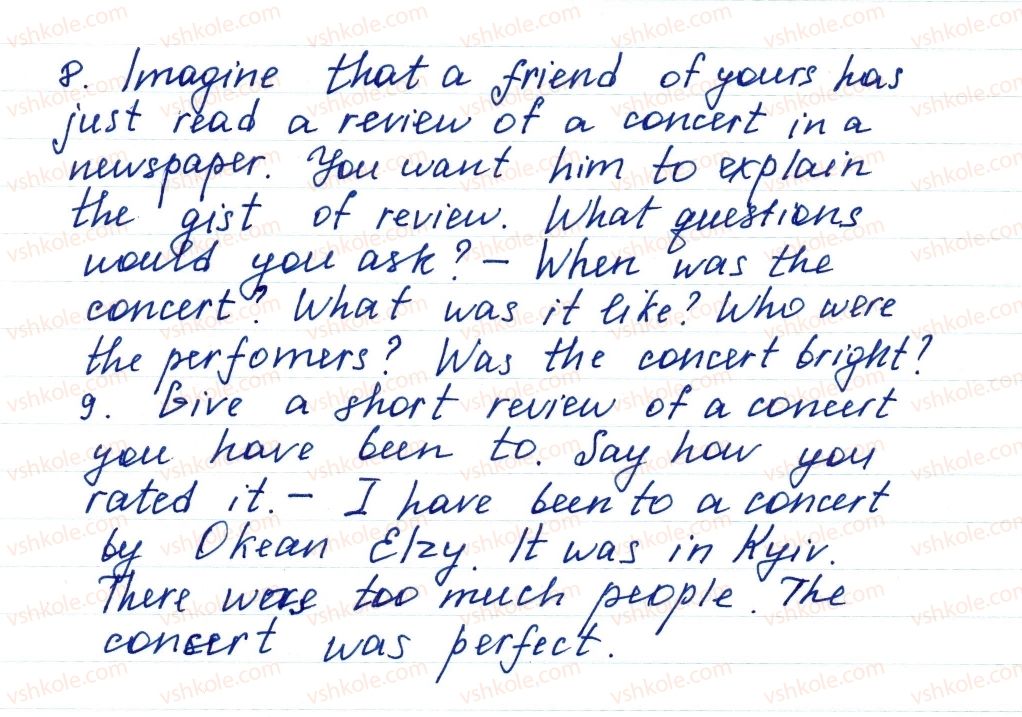 8. Imagine that a friend of yours has
just read a review of a concert in a
newspaper. You want him to explain
the gist of review. What questions
would you ask? – When was the
concert? What was it like? Who were
the perfomers? Was the concert bright?
9. Give a short review of a concert
you have been to. Say how you
rated it. – I have been to a concert
by Okean Elzy. It was in Kyiv.
There were too much people. The
concert was perfect.